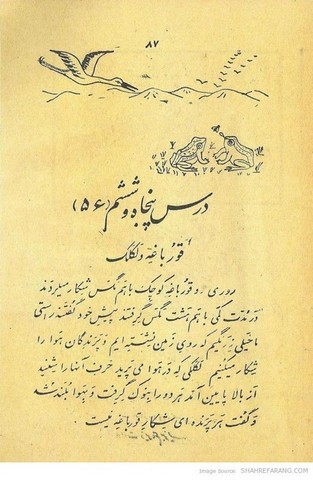 ۸۷
درس پنجاه و ششم (۵۶)
قورباغه و لکلک
روزی دو قورباغهٔ کوچک با هم مگس شکار میکردند
در مدت کمی با هم هشت مگس گرفتند پیش خود گفتند راستی
ما خیلی زرنگیم که روی زمین نشسته ایم و پرندگان هوا را
شکار میکنیم لکلکی که در هوا می پرید حرف آنها را شنید
از بالا پایین آمد هر دو را بنوک گرفت و بهوا بلند شد
و گفت هر پرنده ای شکار قورباغه نیست
Image Source: SHAHREFARANG.COM